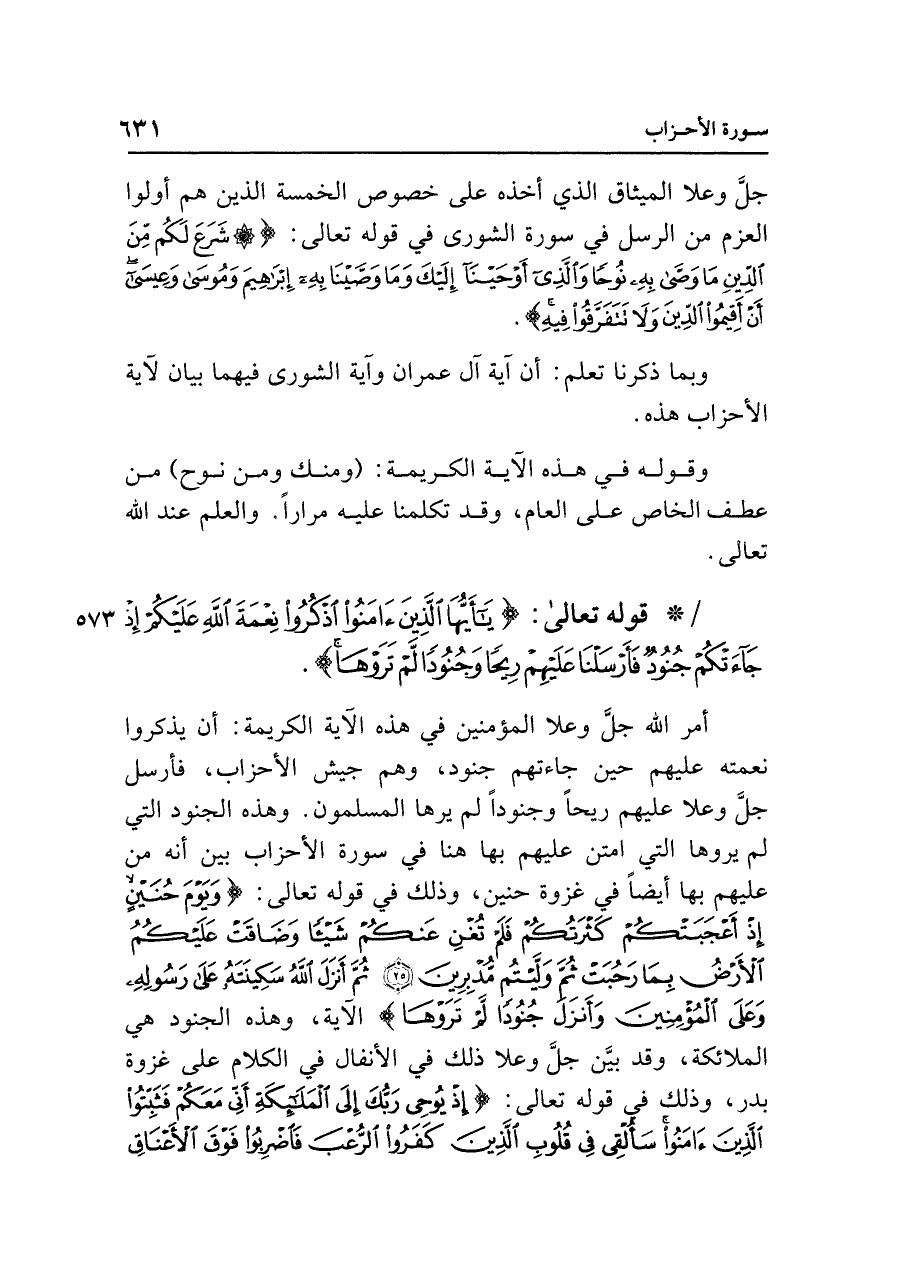 سورة الأحزاب ٦٣١
جلَّ وعلا الميثاق الذي أخذه على خصوص الخمسة الذين هم أولوا
العزم من الرسل في سورة الشورى في قوله تعالى: ﴿ ۞ شَرَعَ لَكُم مِّنَ
ٱلدِّينِ مَا وَصَّىٰ بِهِۦ نُوحًا وَٱلَّذِىٓ أَوْحَيْنَآ إِلَيْكَ وَمَا وَصَّيْنَا بِهِۦٓ إِبْرَٰهِيمَ وَمُوسَىٰ وَعِيسَىٰٓۖ
أَنْ أَقِيمُوا۟ ٱلدِّينَ وَلَا تَتَفَرَّقُوا۟ فِيهِۚ﴾ .
وبما ذكرنا تعلم: أن آية آل عمران وآية الشورى فيهما بيان لآية
الأحزاب هذه.
وقوله في هذه الآية الكريمة: (ومنك ومن نوح) من
عطف الخاص على العام، وقد تكلمنا عليه مراراً. والعلم عند الله
تعالى.
/ * قوله تعالىٰ: ﴿ يَٰٓأَيُّهَا ٱلَّذِينَ ءَامَنُوا۟ ٱذْكُرُوا۟ نِعْمَةَ ٱللَّهِ عَلَيْكُمْ إِذْ ٥٧٣
جَآءَتْكُمْ جُنُودٌ فَأَرْسَلْنَا عَلَيْهِمْ رِيحًا وَجُنُودًا لَّمْ تَرَوْهَاۚ﴾ .
أمر الله جلَّ وعلا المؤمنين في هذه الآية الكريمة: أن يذكروا
نعمته عليهم حين جاءتهم جنود، وهم جيش الأحزاب، فأرسل
جلَّ وعلا عليهم ريحاً وجنوداً لم يرها المسلمون. وهذه الجنود التي
لم يروها التي امتن عليهم بها هنا في سورة الأحزاب بين أنه من
عليهم بها أيضاً في غزوة حنين، وذلك في قوله تعالى: ﴿ وَيَوْمَ حُنَيْنٍۙ
إِذْ أَعْجَبَتْكُمْ كَثْرَتُكُمْ فَلَمْ تُغْنِ عَنكُمْ شَيْـًٔا وَضَاقَتْ عَلَيْكُمُ
ٱلْأَرْضُ بِمَا رَحُبَتْ ثُمَّ وَلَّيْتُم مُّدْبِرِينَ ٢٥ ثُمَّ أَنزَلَ ٱللَّهُ سَكِينَتَهُۥ عَلَىٰ رَسُولِهِۦ
وَعَلَى ٱلْمُؤْمِنِينَ وَأَنزَلَ جُنُودًا لَّمْ تَرَوْهَا ﴾ الآية، وهذه الجنود هي
الملائكة، وقد بيَّن جلَّ وعلا ذلك في الأنفال في الكلام على غزوة
بدر، وذلك في قوله تعالى: ﴿ إِذْ يُوحِى رَبُّكَ إِلَى ٱلْمَلَٰٓئِكَةِ أَنِّى مَعَكُمْ فَثَبِّتُوا۟
ٱلَّذِينَ ءَامَنُوا۟ۚ سَأُلْقِى فِى قُلُوبِ ٱلَّذِينَ كَفَرُوا۟ ٱلرُّعْبَ فَٱضْرِبُوا۟ فَوْقَ ٱلْأَعْنَاقِ